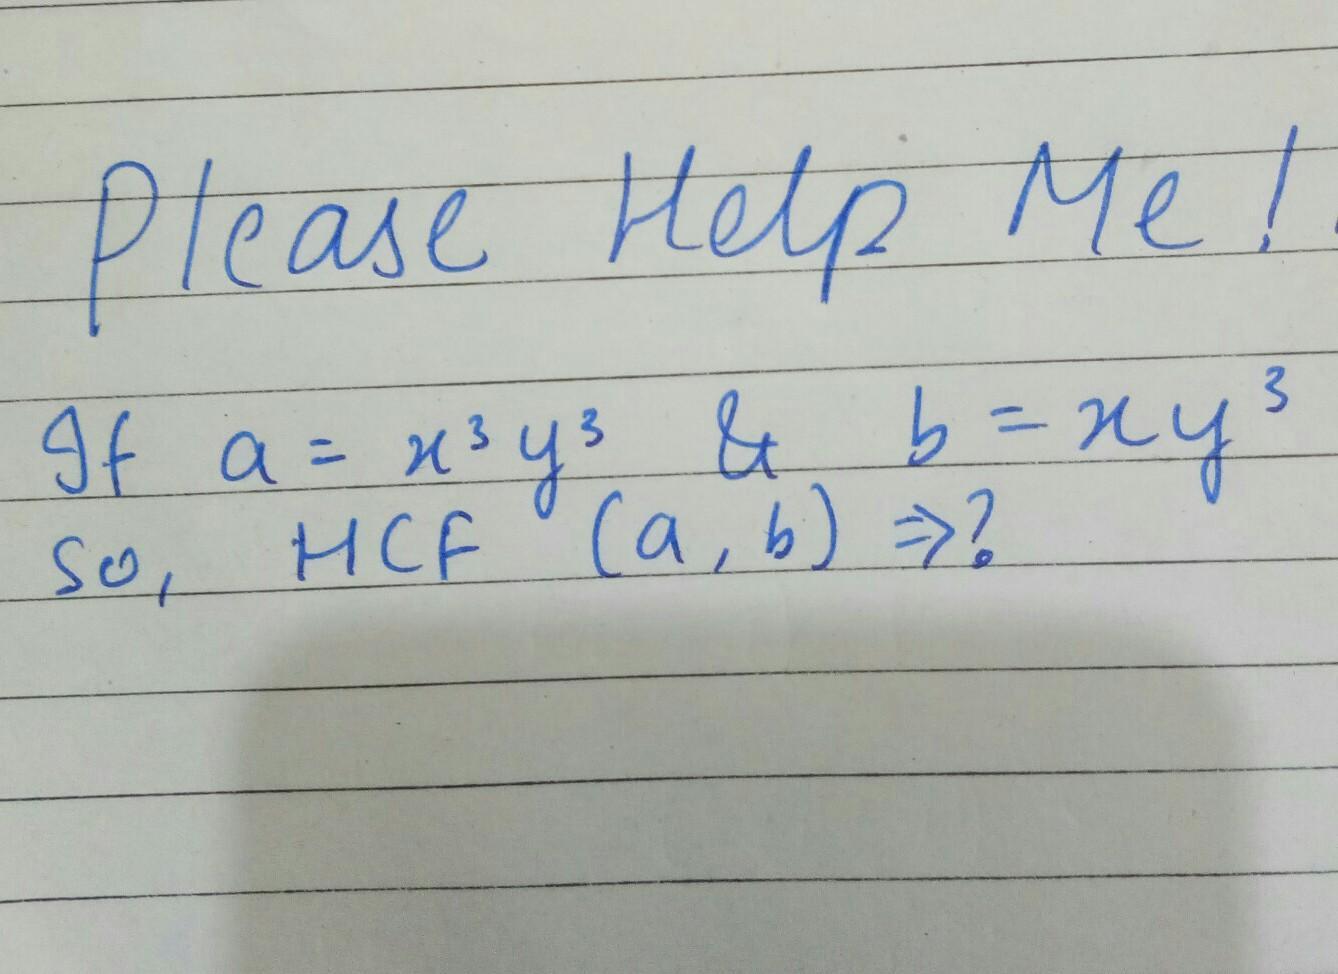 Please Help Me!
If a = x³y³ & b = xy³
so, HCF (a, b) ⇒?